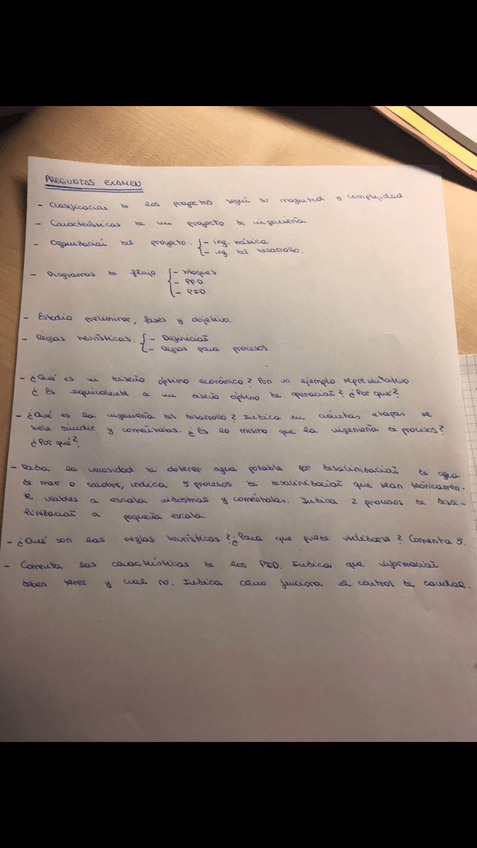 PREGUNTAS EXAMEN
- Clasificación de los proyectos según su magnitud y complejidad.
- Características de un proyecto de ingeniería
- Organización del proyecto. { - ing. básica
- ing. del desarrollo.
- Diagramas de flujo { - bloques
- PFD
- PID
- Estudio preliminar, fases y objetivo.
- Reglas heurísticas: { - Definición
- Reglas para procesos.
- ¿Qué es un diseño óptimo económico? Pon un ejemplo representativo
¿Es equivalente a un diseño óptimo de operación? ¿Por qué?
- ¿Qué es la ingeniería del desarrollo? Indica en cuántas etapas se
suele dividir y coméntalas. ¿Es lo mismo que la ingeniería de procesos?
¿Por qué?
- Dada la necesidad de obtener agua potable por desalinización de agua
de mar o salobre, indica, 5 procesos de desalinización que sean teóricamen-
te viables a escala industrial y coméntalas. Indica 2 procesos de desa-
linización a pequeña escala.
- ¿Qué son las reglas heurísticas? ¿Para que puede utilizarse? Comenta 5.
- Comenta las características de los PID. Indica que información
deben tener y cual no. Indica cómo funciona el control de caudal.